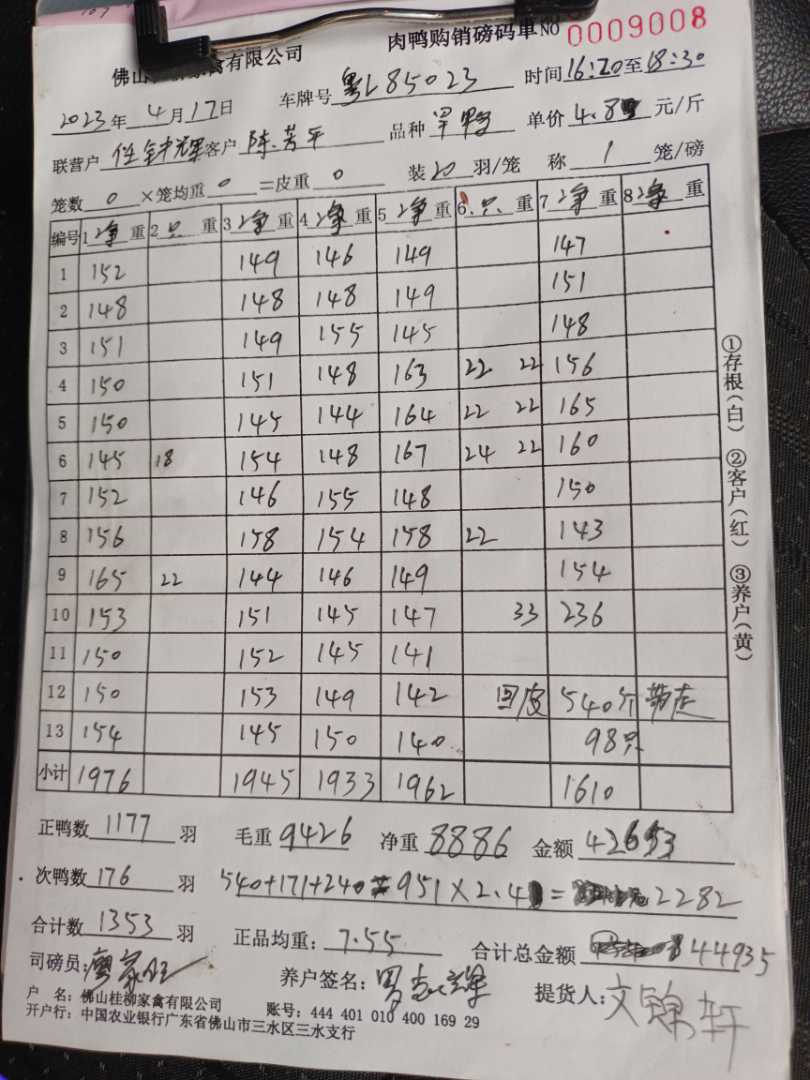 佛山桂柳家禽有限公司 肉鸭购销磅码单 NO 0009008
2023年 4月17日 车牌号 粤L85023 时间16:20至18:30
联营户 任钟辉 客户 陈芳平 品种 单价 4.8 元/斤
笼数 0 ×笼均重 0 =皮重 0 装20羽/笼 称 1 笼/磅
编号 1净重 2只重 3净重 4净重 5净重 6只重 7净重 8净重
1 152 149 146 149 147
2 148 148 148 149 151
3 151 149 155 145 148
4 150 151 148 163 22 22 156
5 150 145 144 164 22 22 165
6 145 18 154 148 167 24 22 160
7 152 146 155 148 150
8 156 158 154 158 22 143
9 165 22 144 146 149 154
10 153 151 145 147 33 236
11 150 152 145 141
12 150 153 149 142 回皮 540斤 带走
13 154 145 150 140 98只
小计 1976 1945 1933 1962 1610
正鸭数 1177 羽 毛重 9426 净重 8886 金额 42653
次鸭数 176 羽 540+171+240=951×2.4=2282
合计数 1353 羽 正品均重: 7.55 合计总金额 44935
司磅员: 养户签名: 提货人: 文锦轩
户 名: 佛山桂柳家禽有限公司 账号: 444 401 010 400 169 29
开户行: 中国农业银行广东省佛山市三水区三水支行
①存根(白) ②客户(红) ③养户(黄)